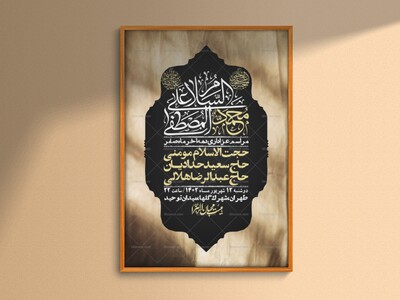 السلام علی
محمد المصطفی
مراسم عزاداری دهه آخر ماه صفر
حجت الاسلام مومنی
حاج سعید حدادیان
حاج عبدالرضا هلالی
دوشنبه ۱۲ شهریور ماه ۱۴۰۲ / ساعت ۲۲
طهران شهرک گلها میدان توحید